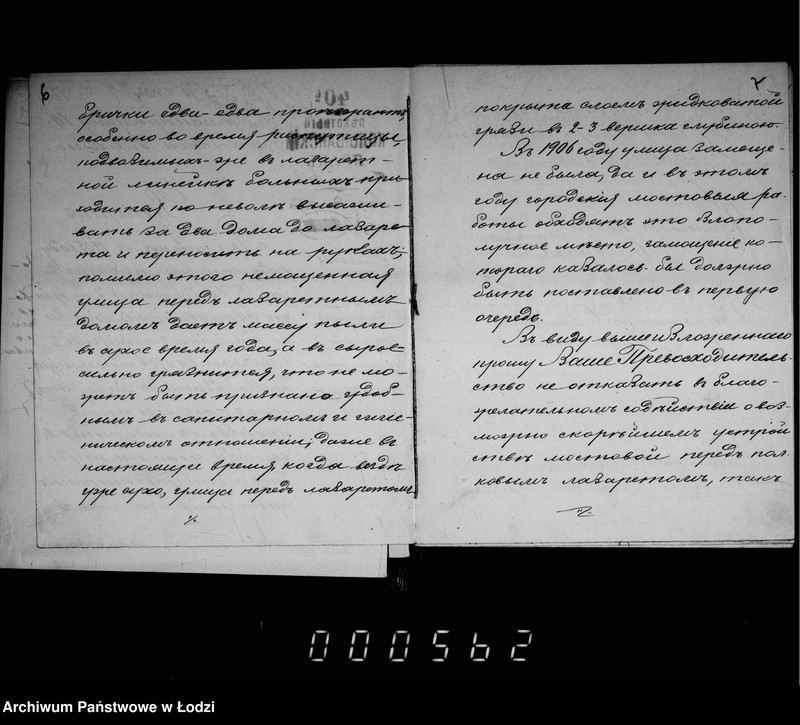 6
брички едва-едва проъзжаютъ,
особенно во время распутицы,
подвозимыхъ-же въ лазарет-
ной линейкѣ больныхъ при-
ходится по неволѣ высажи-
вать за два дома до лазаре-
та и переносить на рукахъ;
помимо этого немощенная
улица передъ лазаретнымъ
домомъ даетъ массу пыли
въ сухое время года, а въ сырое
сильно грязнится, что не мо-
жетъ быть признано удоб-
нымъ въ санитарномъ и гигіе-
ническомъ отношеніи; даже въ
настоящее время, когда вездѣ
уже сухо, улица передъ лазаретомъ
7
покрыта слоемъ жидковатой
грязи въ 2-3 вершка глубиною.
Въ 1906 году улица замоще-
на не была, да и въ этомъ
году городскія мостовыя ра-
боты обходятъ это злопо-
лучное мѣсто, замощеніе ко-
тораго казалось-бы должно
быть поставлено въ первую
очередь.
Въ виду вышеизложеннаго
прошу Ваше Превосходитель-
ство не отказать въ благо-
желательномъ содѣйствіи о воз-
можно скорѣйшемъ устрой
ствѣ мостовой передъ пол-
ковымъ лазаретомъ, такъ
000562
Archiwum Państwowe w Łodzi